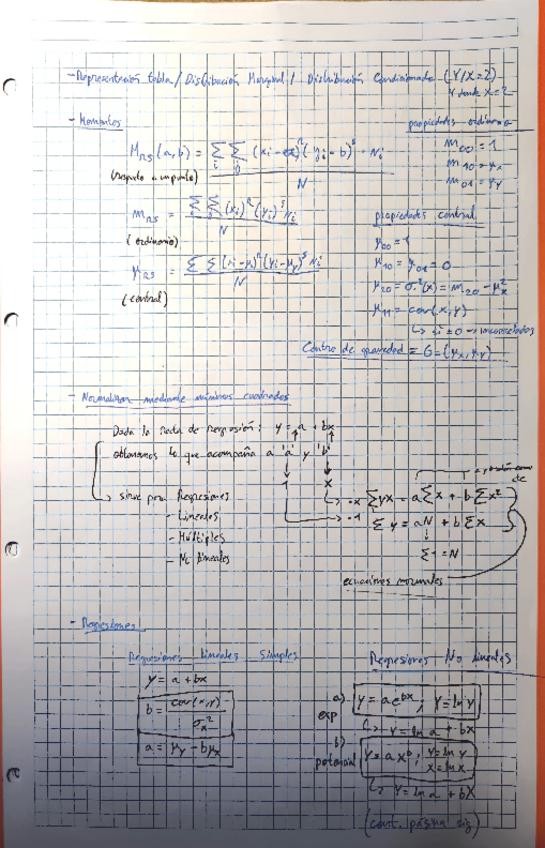 - Representación tabla / Distribución Marginal / Distribución Condicionada (Y/X=2)
Y dado X=2
- Momentos
M_RS (a,b) = Σ_i Σ_j (x_i - a)^R (y_j - b)^S · N_i / N
(respecto a un punto)
m_RS = Σ_i Σ_j (x_i)^R (y_j)^S N_i / N
(ordinario)
μ_RS = Σ Σ (x_i - μ_x)^R (y_i - μ_y)^S N_i / N
(central)
propiedades ordinario
m_00 = 1
m_10 = μ_x
m_01 = μ_y
propiedades central
μ_00 = 1
μ_10 = μ_01 = 0
μ_20 = σ²(x) = m_20 - μ_x²
μ_11 = cov(x,y)
↳ si = 0 → incorreladas
Centro de gravedad = G = (μ_x, μ_y)
- Normalizar mediante mínimos cuadrados
Dada la recta de Regresión: y = a + bx
obtenemos lo que acompaña a 'a' y 'b'
1 x
→ sirve para Regresiones
- Lineales
- Múltiples
- No lineales
→ ·x Σyx = aΣx + bΣx²
→ ·1 Σy = aN + bΣx
Σ1 = N
ecuaciones normales
- Regresiones
Regresiones Lineales Simples
y = a + bx
b = cov(x,y) / σ_x²
a = μ_y - bμ_x
Regresiones No Lineales
a) exp y = ae^bx ; Y = ln y
↳ Y = ln a + bx
b) potencial y = ax^b ; Y = ln y
X = ln x
↳ Y = ln a + bX
(cont. página sig)